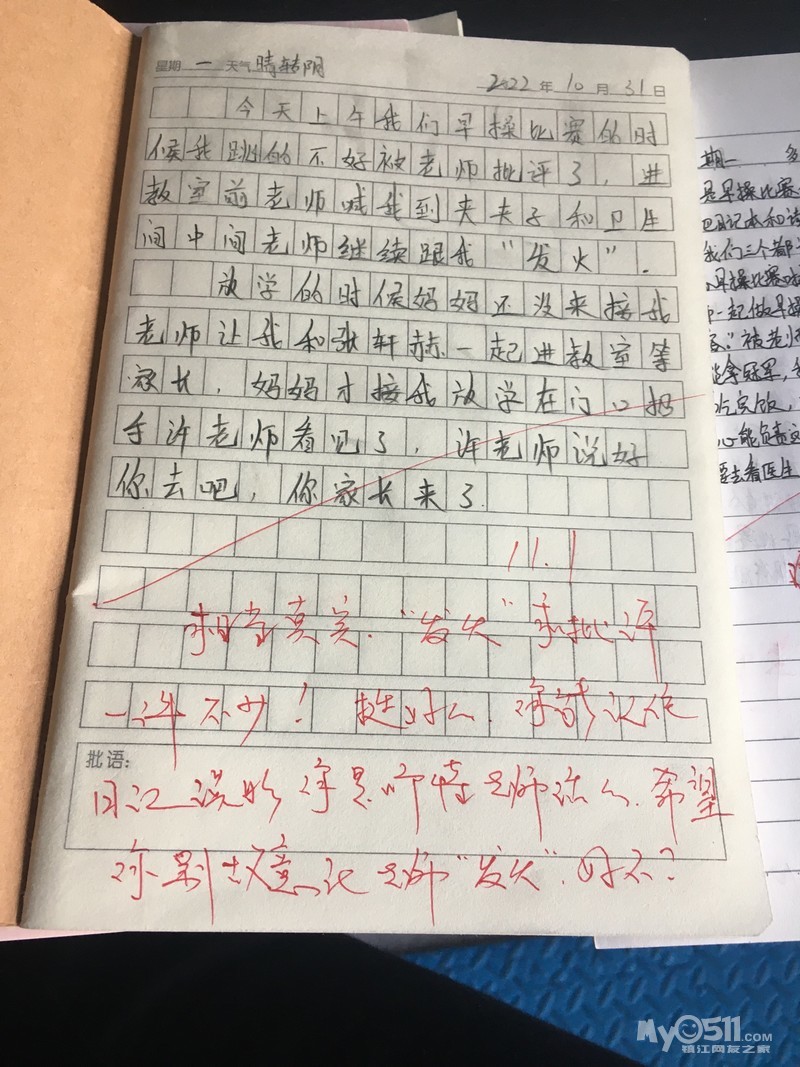 星期 一 天气 晴转阴 2022年10月31日
今天上午我们早操比赛的时
候我跳的不好被老师批评了，进
教室前老师喊我到夹夹子和卫生
间中间老师继续跟我“发火”．
放学的时候妈妈还没来接我
老师让我和张轩赫一起进教室等
家长．妈妈才接我放学在门口招
手许老师看见了，许老师说好
你去吧，你家长来了
11.1
相当真实．“发火”和批评
一样不少！挺好么．你能认
日记说明你是听老师话
希望
你别故意让老师“发火”．好不？
批语：
期一
是早操比赛
日记本和
我们三个都
早操比赛
一起做早操
被老师
拿冠军，
吃完饭，
心能负责
要去看医生
My0511.COM
镇江网友之家